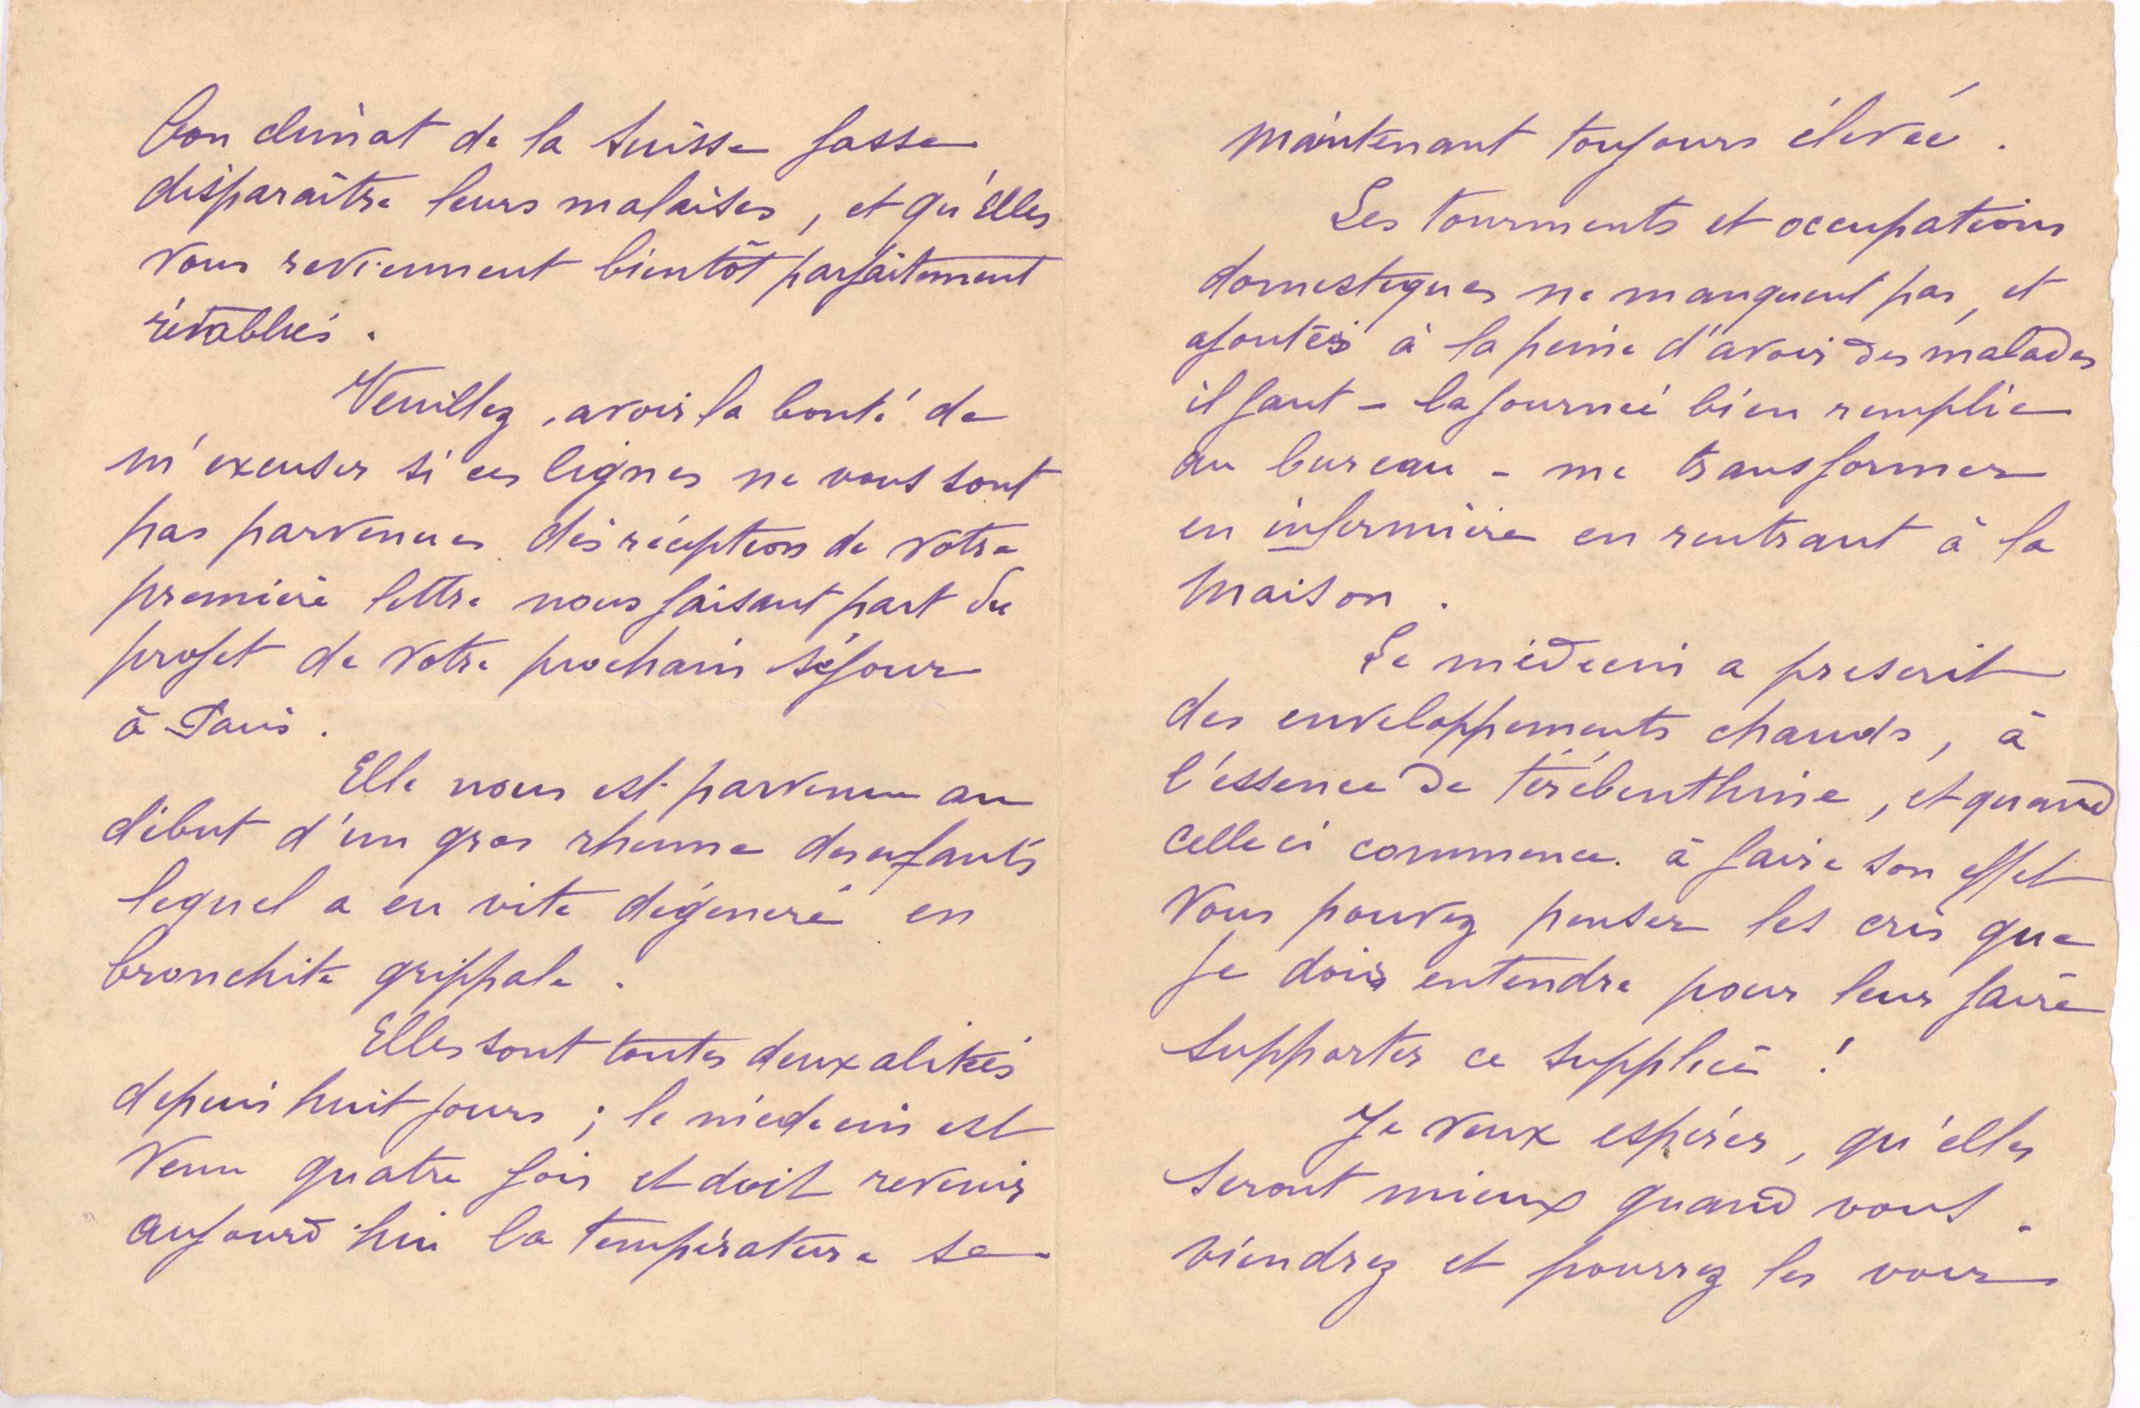 bon climat de la Suisse fasse
disparaître leurs malaises, et qu'Elles
vous reviennent bientôt parfaitement
rétablies.
Veuillez avoir la bonté de
m'excuser si ces lignes ne vous sont
pas parvenues dès réception de votre
première lettre nous faisant part du
projet de votre prochain séjour
à Paris.
Elle nous est parvenue au
début d'un gros rhume des enfants
lequel a eu vite dégénéré en
bronchite grippale.
Elles sont toutes deux alitées
depuis huit jours ; le médecin est
venu quatre fois et doit revenir
aujourd'hui la température se
maintenant toujours élevée.
Les tourments et occupations
domestiques ne manquent pas, et
ajoutés à la peine d'avoir des malades
il faut - la journée bien remplie
au bureau - me transformer
en infirmière en rentrant à la
maison.
Le médecin a prescrit
des enveloppements chauds, à
l'éssence de térébenthine, et quand
celle ci commence à faire son effet
vous pouvez penser les cris que
je dois entendre pour leur faire
supporter ce supplice !
Je veux espérer, qu'elles
seront mieux quand vous
viendrez et pourrez les voir